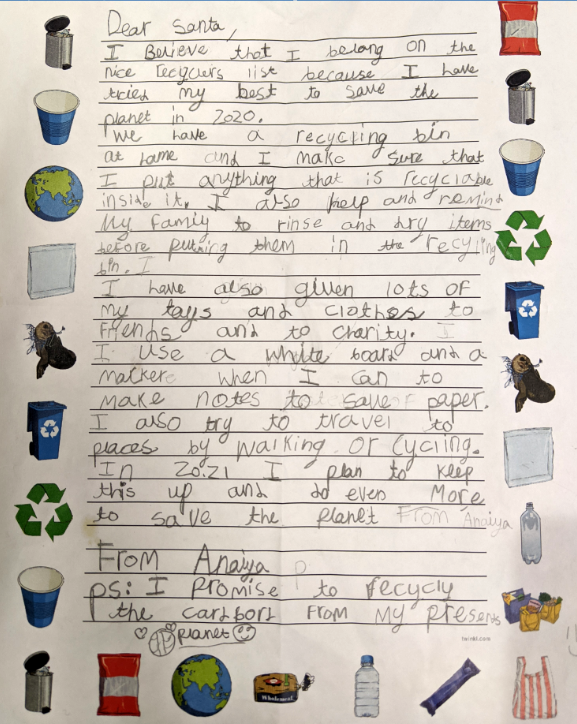 Dear Santa,
I Believe that I belong on the
nice recyclers list because I have
tried my best to save the
planet in 2020.
We have a recycling bin
at home and I make sure that
I put anything that is recyclable
inside it. I also help and remind
My Family to rinse and dry items
before putting them in the recycling
bin. I
I have also given lots of
my toys and clothes to
friends and to charity. I
I use a white board and a
marker when I can to
make notes to save paper.
I also try to travel to
places by walking or cycling.
In 2021 I plan to keep
this up and do even More
to save the planet From Anaiya
From Anaiya
ps: I Promise to recycly
the carbord From My Presents
planet
twinkl.com
Wholemeal